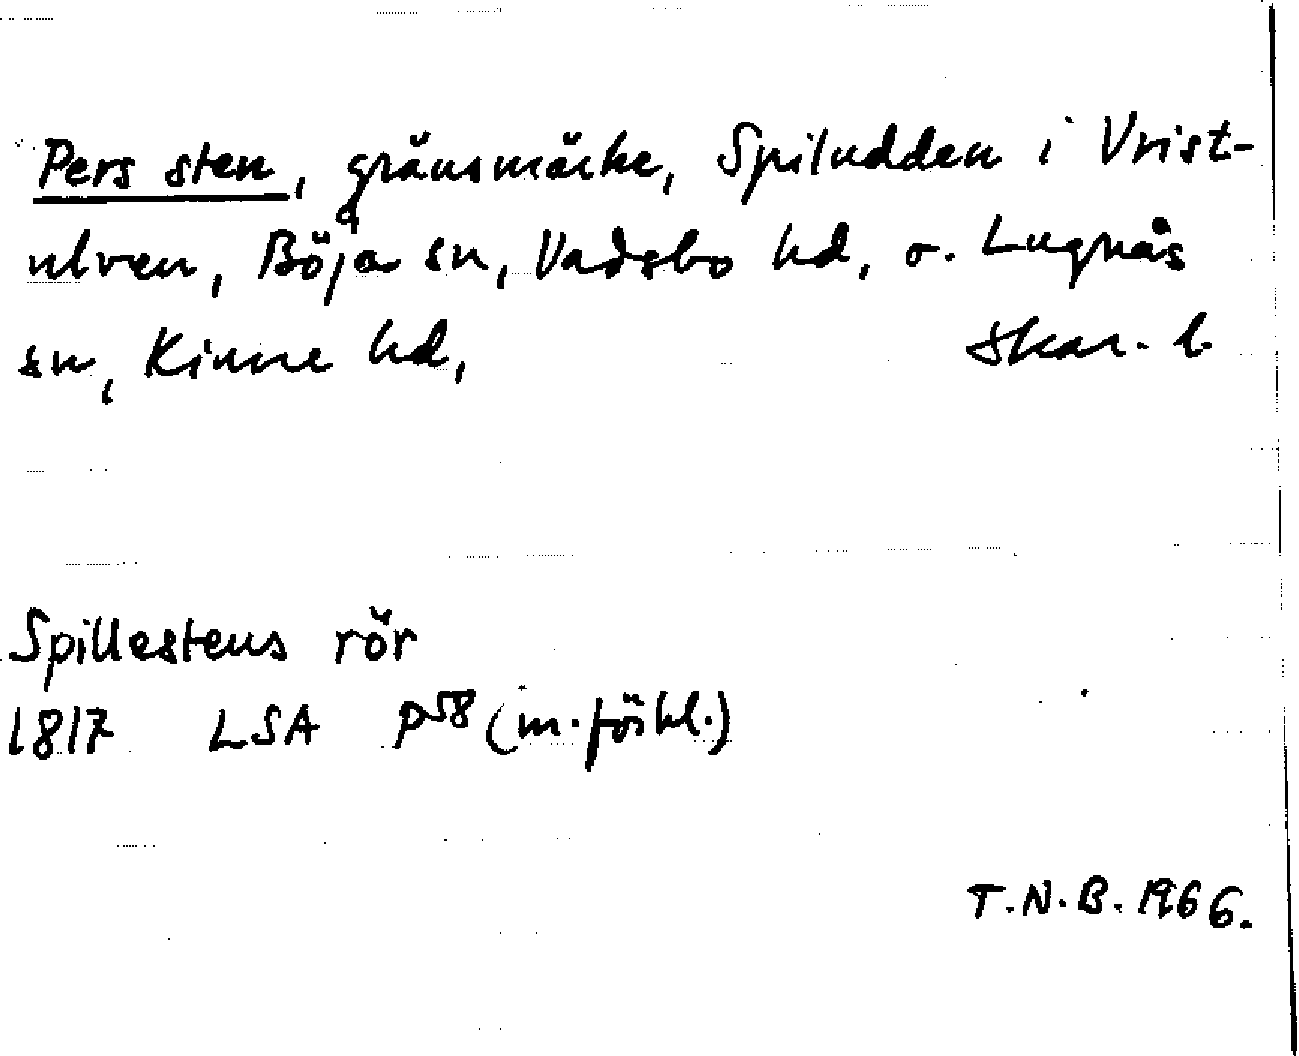 Pers sten, gränsmärke, Spiludden i Vrist-
ulven, Böja sn, Vadsbo hd, o. Lugnås
sn, Kinne hd, Skar. l.
Spillestens rör
1817 LSA P58 (m. förkl.)
T.N.B. 1966.